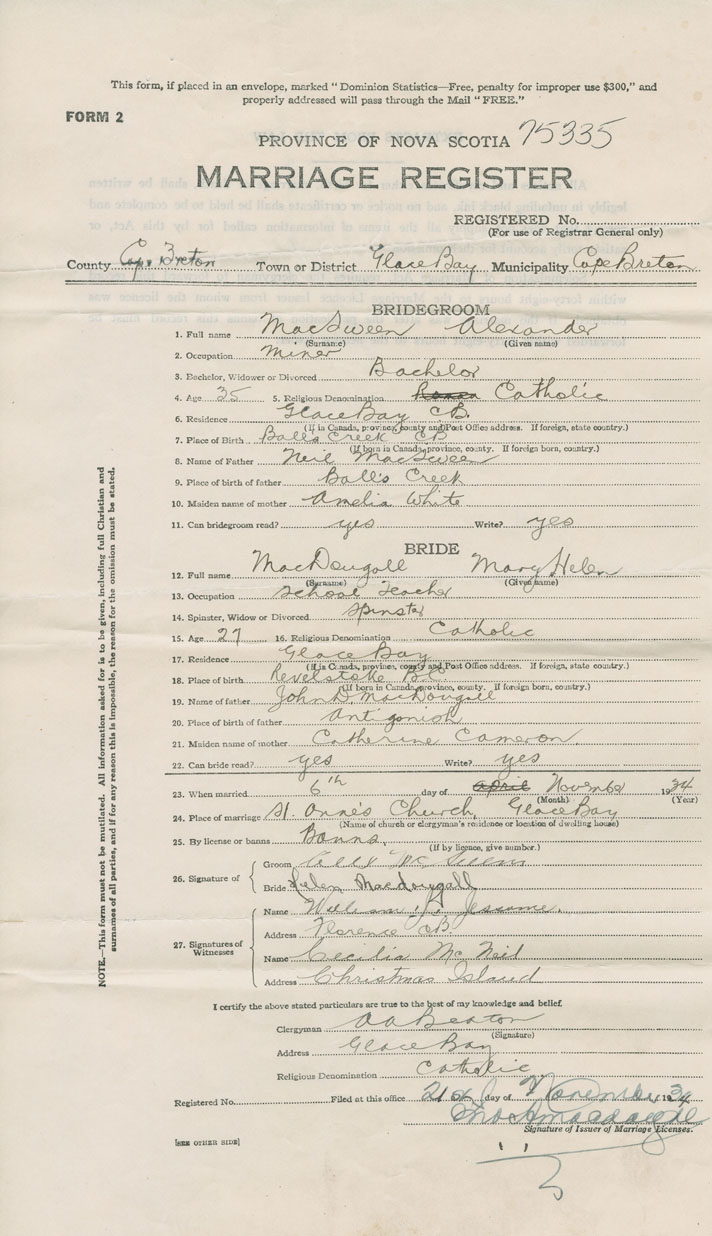 This form, if placed in an envelope, marked "Dominion Statistics—Free, penalty for improper use $300," and
properly addressed will pass through the Mail "FREE."
FORM 2
PROVINCE OF NOVA SCOTIA 75335
MARRIAGE REGISTER
REGISTERED No.
(For use of Registrar General only)
County Cape Breton Town or District Glace Bay Municipality Cape Breton
BRIDEGROOM
1. Full name MacSween Alexander
(Surname) (Given name)
2. Occupation Miner
3. Bachelor, Widower or Divorced Bachelor
4. Age 35 5. Religious Denomination Roman Catholic
6. Residence Glace Bay CB.
(If in Canada, province, county and Post Office address. If foreign, state country.)
7. Place of Birth Balls Creek CB
(If born in Canada, province, county. If foreign born, country.)
8. Name of Father Neil MacSween
9. Place of birth of father Ball's Creek
10. Maiden name of mother Amelia White
11. Can bridegroom read? yes Write? yes
BRIDE
12. Full name MacDougall Mary Helen
(Surname) (Given name)
13. Occupation School Teacher
14. Spinster, Widow or Divorced Spinster
15. Age 27 16. Religious Denomination Catholic
17. Residence Glace Bay
(If in Canada, province, county and Post Office address. If foreign, state country.)
18. Place of birth Revelstoke B.C.
(If born in Canada, province, county. If foreign born, country.)
19. Name of father John D. MacDougall
20. Place of birth of father Antigonish
21. Maiden name of mother Catherine Cameron
22. Can bride read? yes Write? yes
23. When married 6th day of April November 1934
(Month) (Year)
24. Place of marriage St. Anne's Church, Glace Bay
(Name of church or clergyman's residence or location of dwelling house)
25. By license or banns Banns.
(If by licence, give number.)
26. Signature of Groom
Bride Helen Macdougall
27. Signatures of Witnesses
Name William J. Jessome.
Address Florence CB.
Name Cecilia McNeil
Address Christmas Island
I certify the above stated particulars are true to the best of my knowledge and belief.
Clergyman AA Beaton
(Signature)
Address Glace Bay
Religious Denomination Catholic
Registered No. Filed at this office 21st day of November 1934
Signature of Issuer of Marriage Licenses.
[SEE OTHER SIDE]
NOTE.—This form must not be mutilated. All information asked for is to be given, including full Christian and
surnames of all parties, and if for any reason this is impossible, the reason for the omission must be stated.